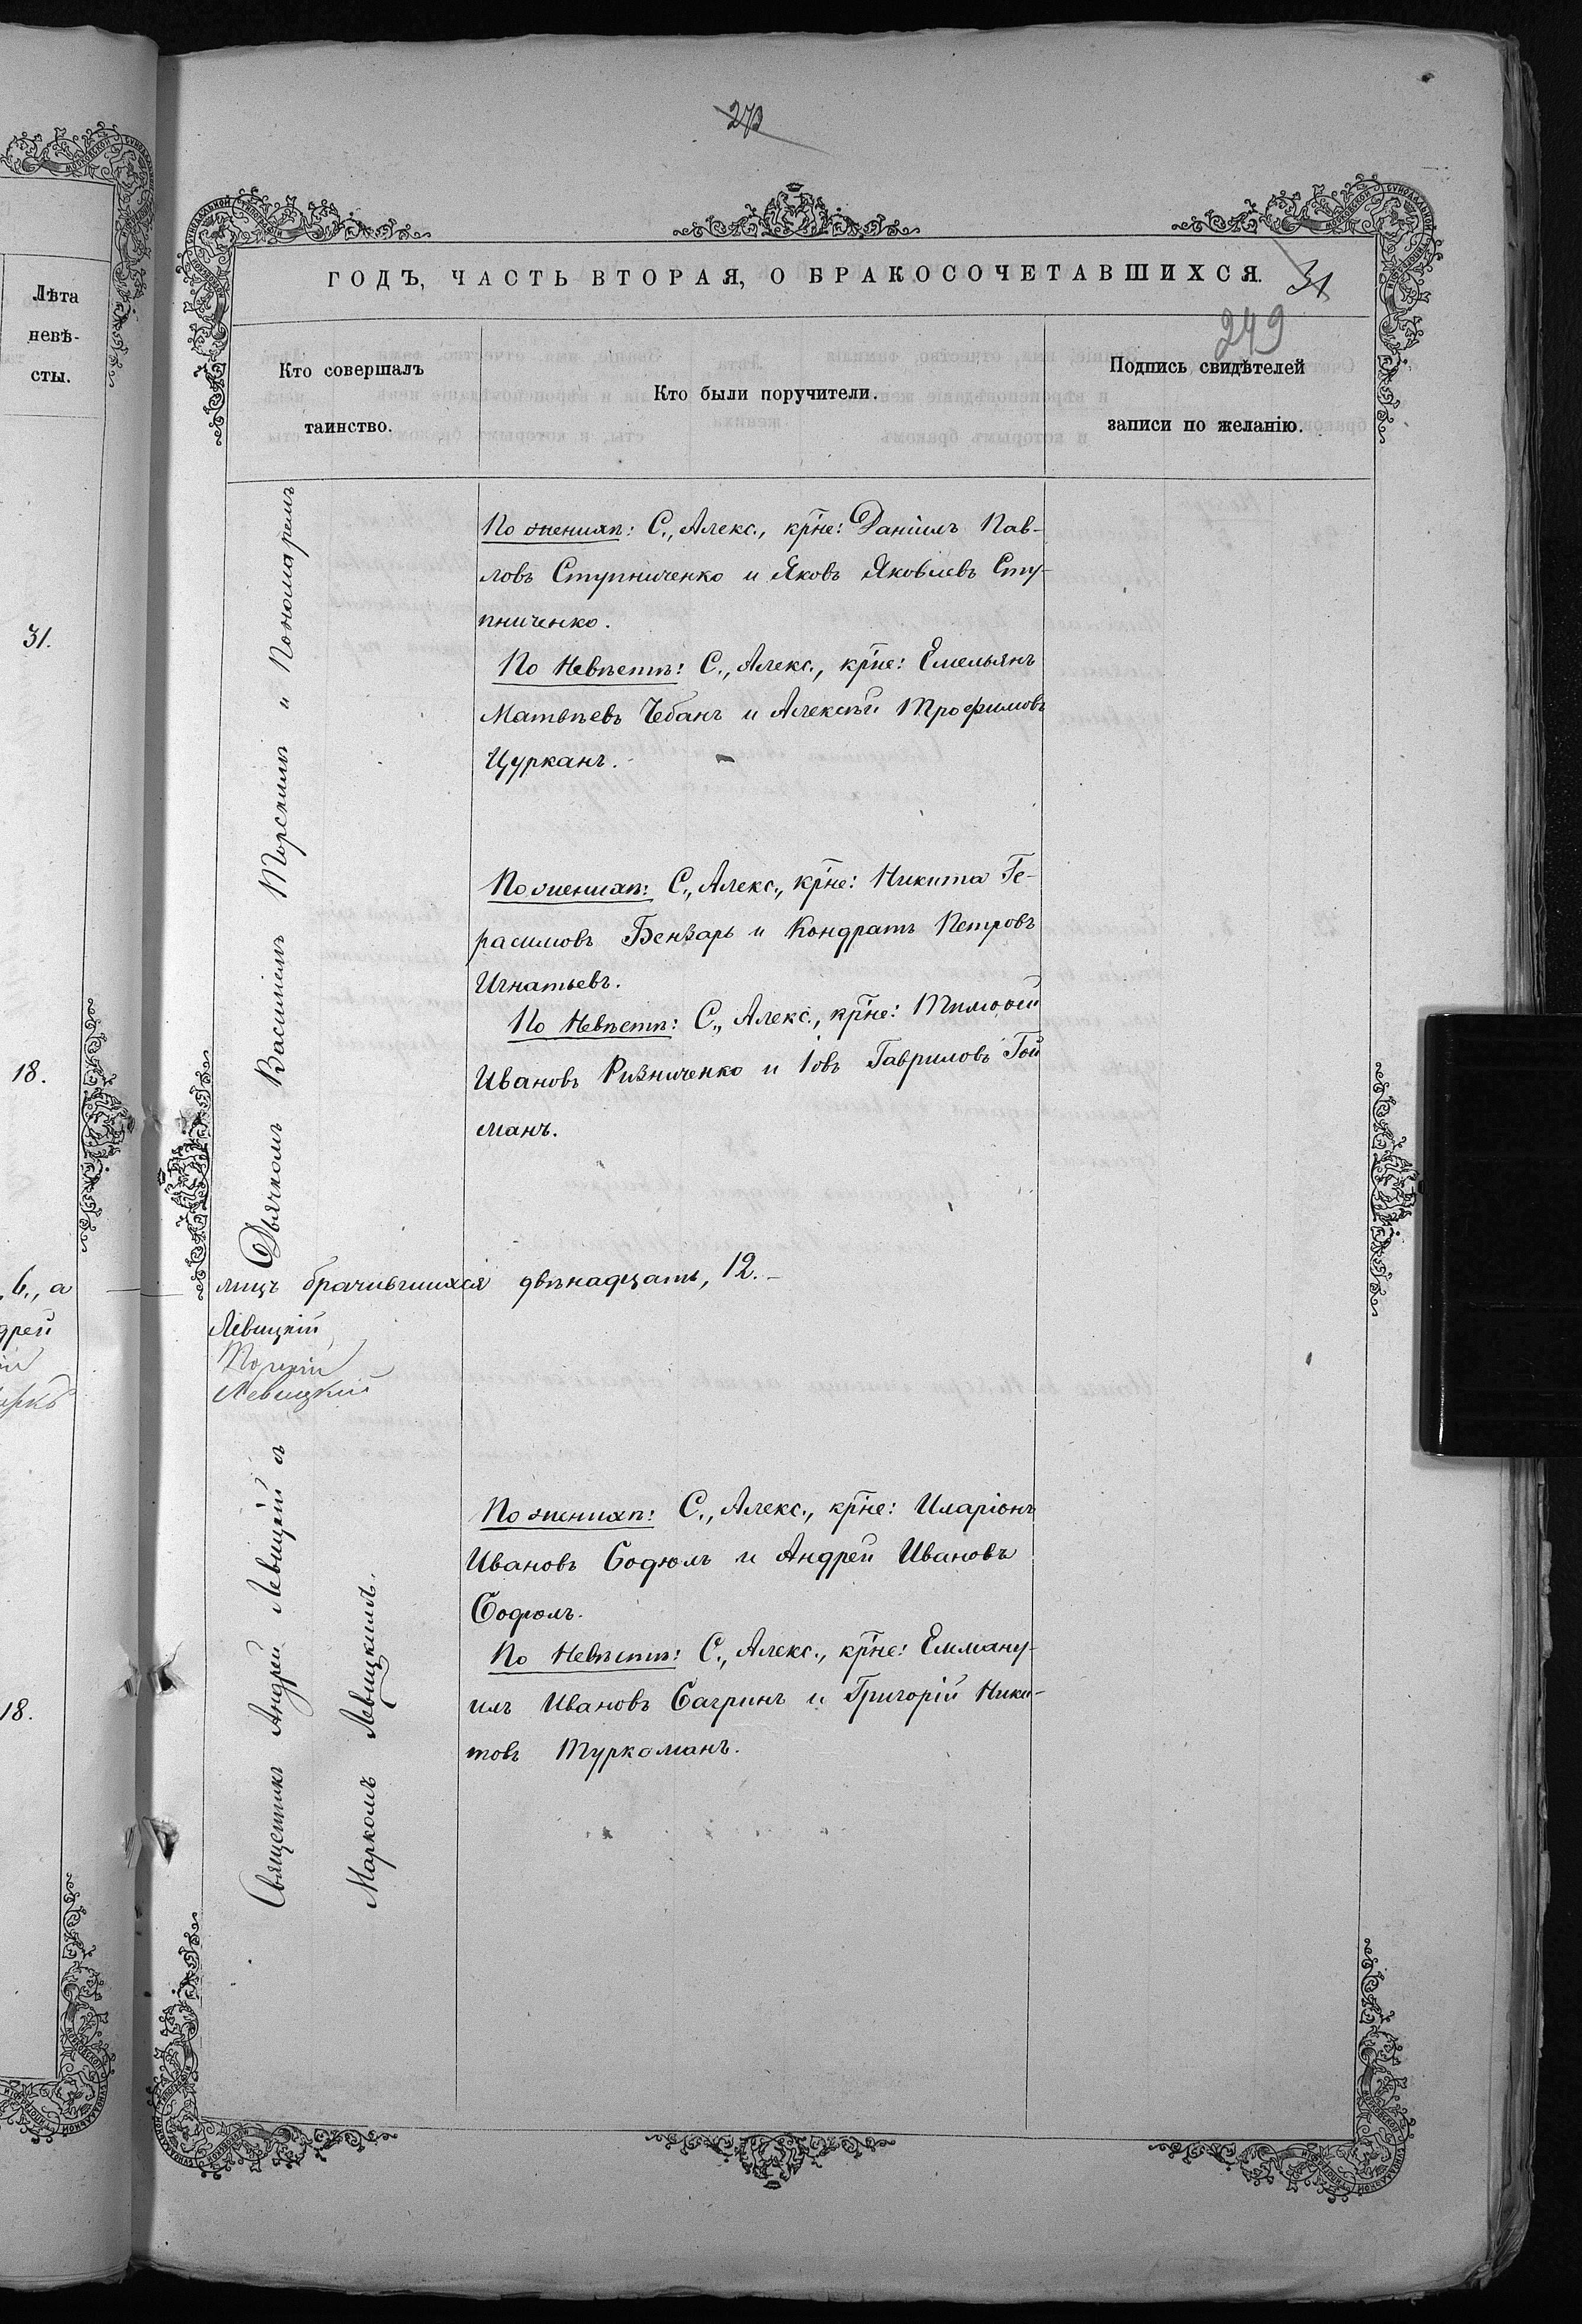 273
ГОДЪ, ЧАСТЬ ВТОРАЯ, О БРАКОСОЧЕТАВШИХСЯ.
31
249
Лѣта
невѣ-
сты.
Кто совершалъ
таинство.
Кто были поручители.
Подпись свидѣтелей
записи по желанію.
31.
18.
6., а
дрей
18.
Дьячкомъ Василіемъ Торскимъ и Пономаремъ
По женихѣ: С., Алекс., кр̃не: Даніилъ Пав-
ловъ Ступниченко и Яковъ Яковлевъ Сту-
пниченко.
По Невѣстѣ: С., Алекс., кр̃не: Емельянъ
Матвѣевъ Чебанъ и Алексѣй Трофимовъ
Цурканъ.
По женихѣ: С., Алекс., кр̃не: Никита Ге-
расимовъ Бензарь и Кондратъ Петровъ
Игнатьевъ.
По Невѣстѣ: С., Алекс., кр̃не: Тимоѳей
Ивановъ Ризниченко и Іовъ Гавриловъ Гой
манъ.
лицъ брачившихся двѣнадцать, 12.-
Левицкій
Торскій
Левицкій
Священникъ Андрей Левицкій съ
Маркомъ Левицкимъ.
По женихѣ: С., Алекс., кр̃не: Иларіонъ
Ивановъ Содюлъ и Андрей Ивановъ
Содюлъ.
По Невѣстѣ: С., Алекс., кр̃не: Еммануи-
илъ Ивановъ Сагринъ и Григорій Ники-
товъ Туркоманъ.